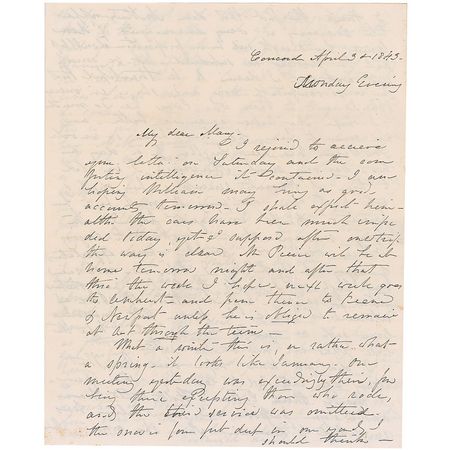 Concord April 3d 1843.
Monday Evening
My dear Mary.
I rejoiced to receive
your letter on Saturday and the com
forting intelligence it contained. I am
hoping William may bring as good
accounts tomorrow. I shall expect him
altho the cars have been much impe
ded today yet I suppose after one trip
the way is clear. Mr Pierce will be at
home tomorrow night and after that
thro' the week I hope. next week goes
to Amherst and from thence to Keene
& Newport unless he is obliged to remain
at  through the term
What a winter this is, or rather what
a spring. it looks like January. Our
meeting yesterday was exceedingly thin, 
being there excepting those who rode,
and the third service was omitted
the snow is four feet deep in our yard, I
should think